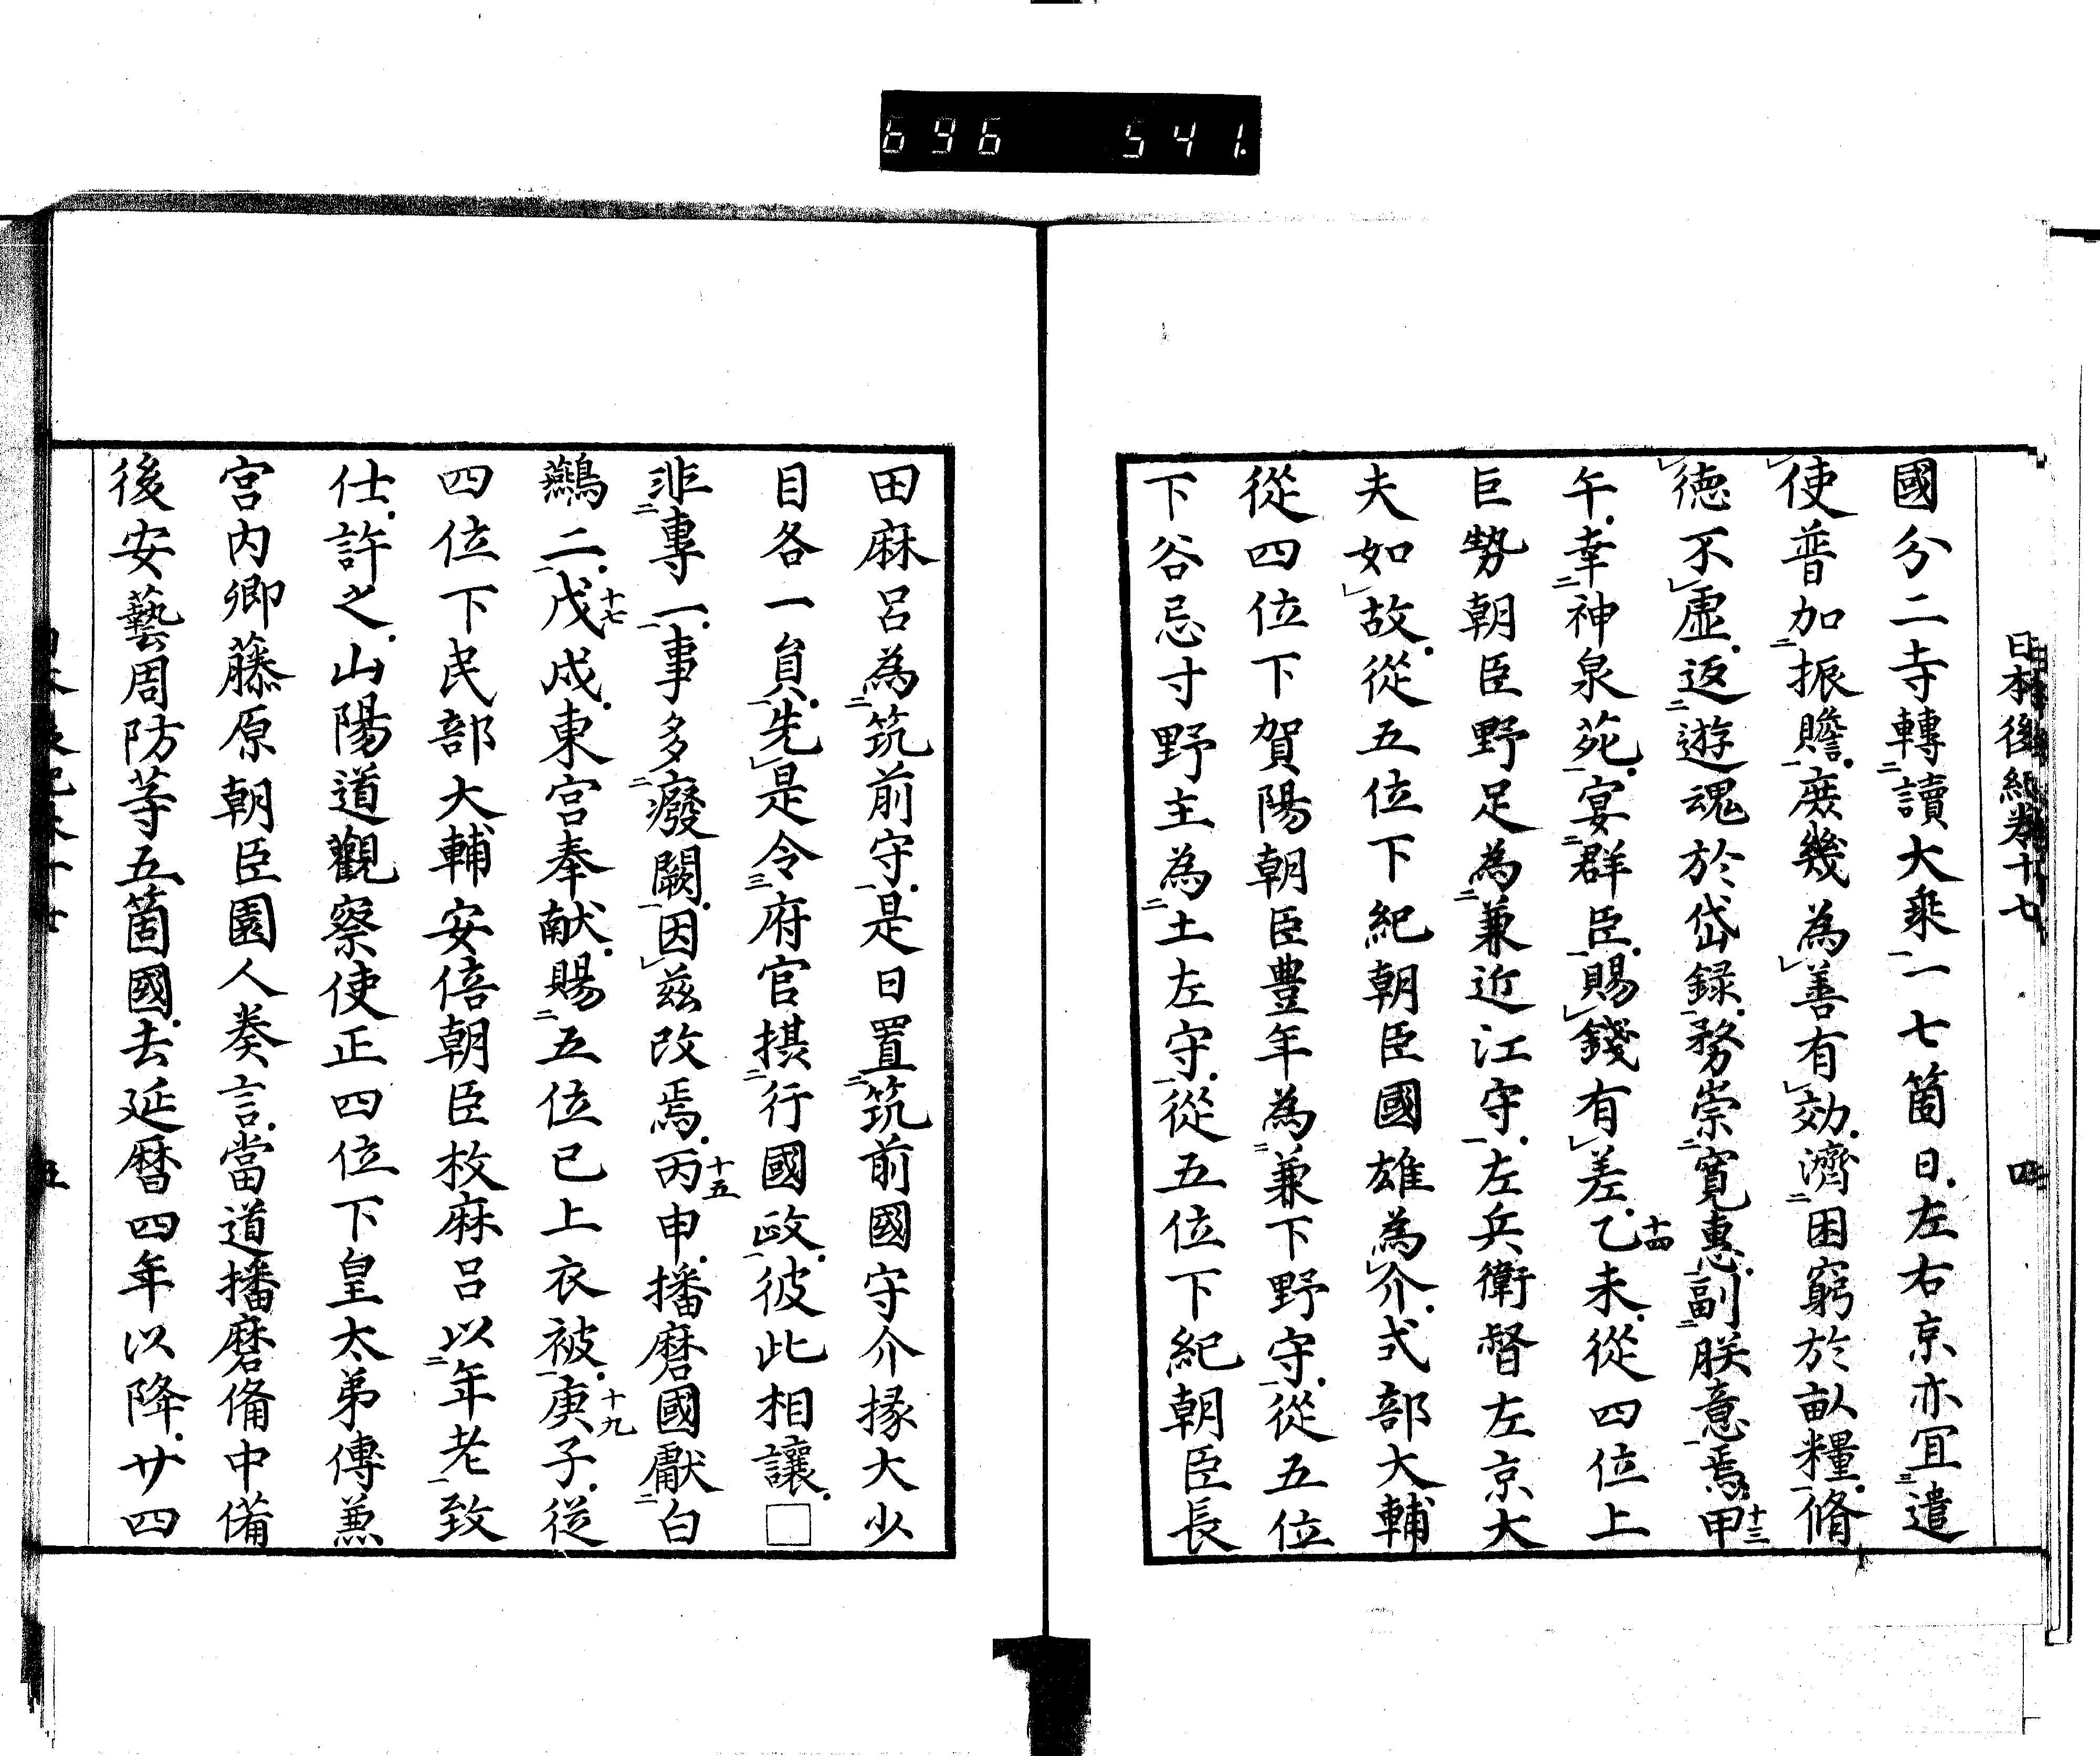 696 541.
日本後紀卷十七 四
國分二寺轉讀大乘一七箇日左右京亦宜遣
使普加振贍庶幾為善有効濟困窮於畝糧脩
徳不虛返遊魂於岱録務崇寬惠副朕意焉甲十三
午幸神泉苑宴群臣賜錢有差乙十四未從四位上
巨勢朝臣野足為兼近江守左兵衛督左京大
夫如故從五位下紀朝臣國雄為介式部大輔
從四位下賀陽朝臣豊年為兼下野守從五位
下谷忌寸野主為土左守從五位下紀朝臣長
田麻呂為筑前守是日置筑前國守介掾大少
目各一員先是令府官攝行國政彼此相讓□
非專一事多癈闕因茲改焉丙十五申播磨國獻白
鷰二戊十七戌東宮奉献賜五位已上衣被庚十九子從
四位下民部大輔安倍朝臣枚麻呂以年老致
仕許之山陽道觀察使正四位下皇太弟傳兼
宮内卿藤原朝臣園人奏言當道播磨備中備
後安藝周防等五箇國去延暦四年以降廿四
五